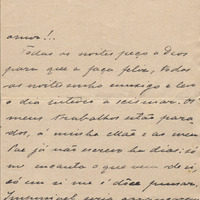 amor!..
Todas as noites peço a Deus
para que a faça feliz, todas
as noites sonho comsigo e levo
o dia inteiro a scismar. Os
meus trabalhos estão para
dos, á minha Mãe e ao meu
Pae já não escrevo ha dias. só
me encanta o que vem de si,
só em si me é dôce pensar.